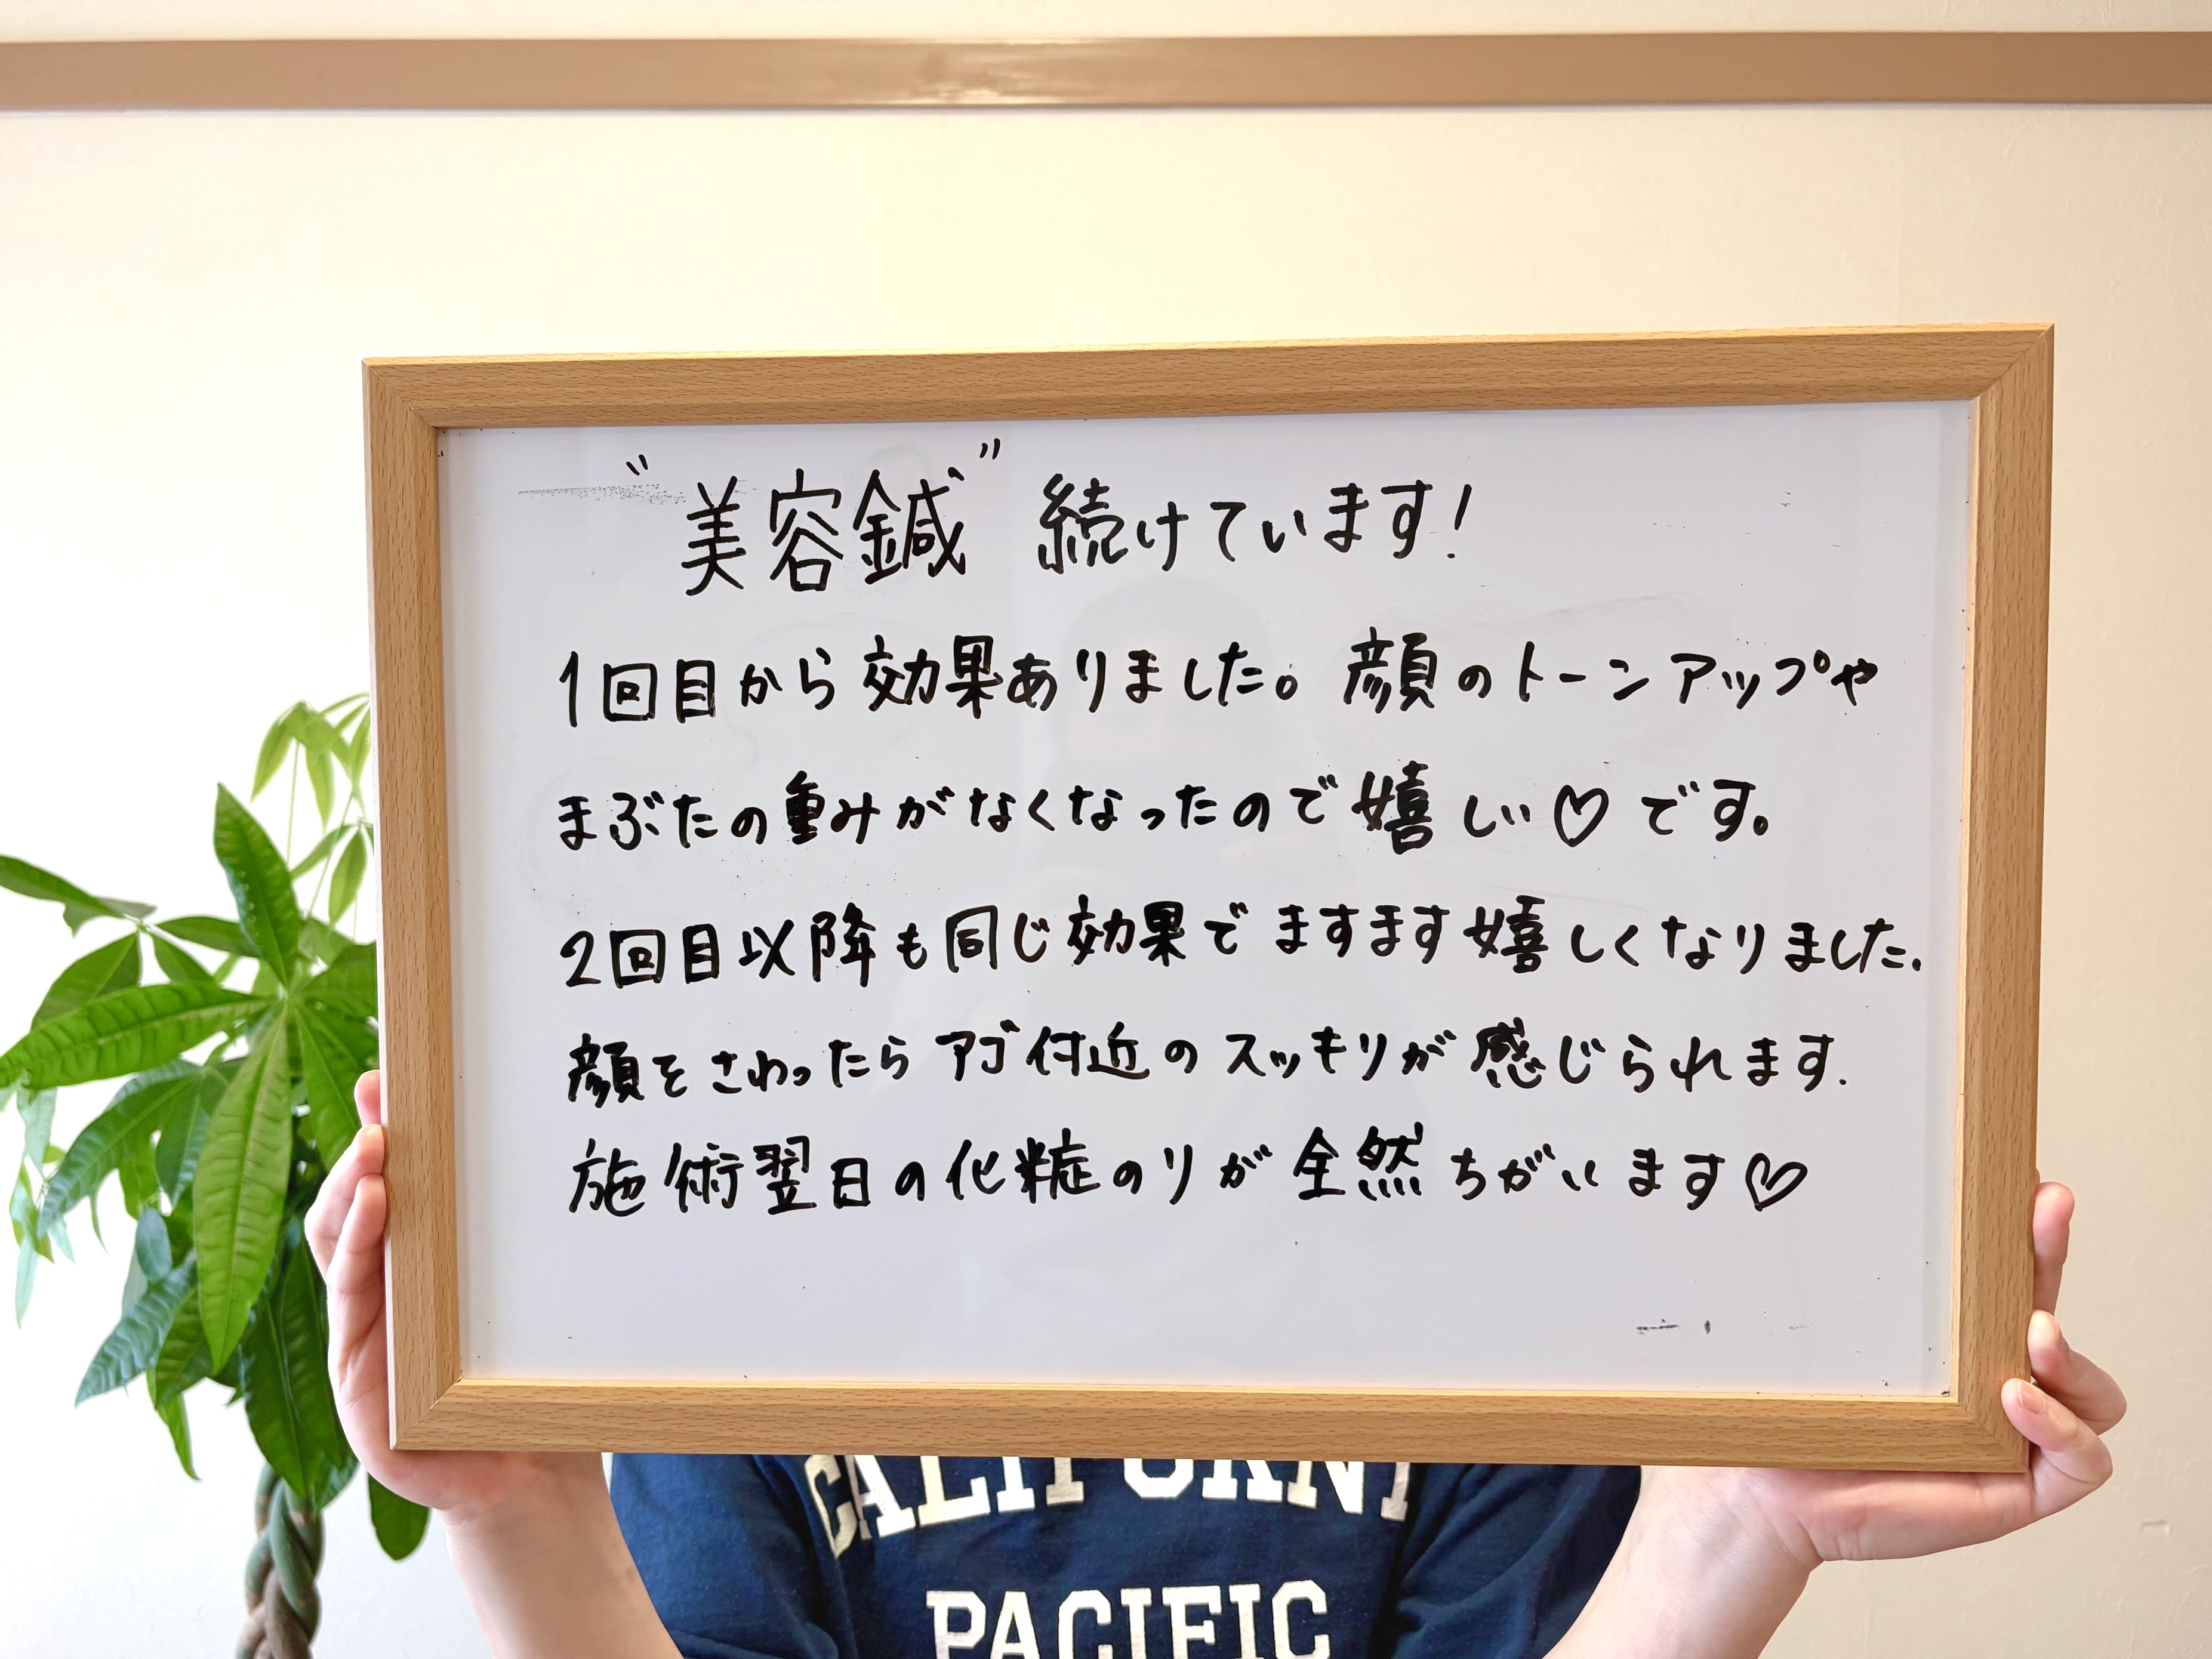 "美容鍼" 続けています!
1回目から効果ありました。顔のトーンアップや
まぶたの重みがなくなったので嬉しい♡です。
2回目以降も同じ効果でますます嬉しくなりました.
顔をさわったらアゴ付近のスッキリが感じられます.
施術翌日の化粧のりが全然ちがいます♡
CALIFORNI
PACIFIC